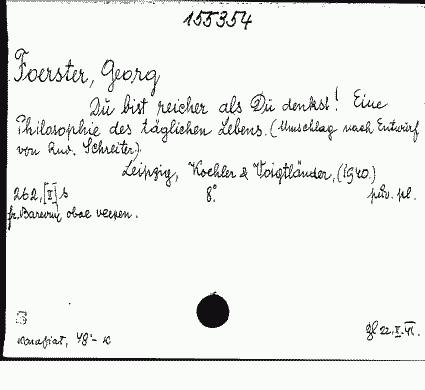 155354
Foerster, Georg
Du bist reicher als Du denkst! Eine
Philosophie des täglichen Lebens. (Umschlag nach Entwurf
von Rud. Schreiter.)
Leipzig, Koehler & Voigtländer, (1940.)
262, [II] s 8°. püv. pl.
fr.
48
gl 22. II. 41.